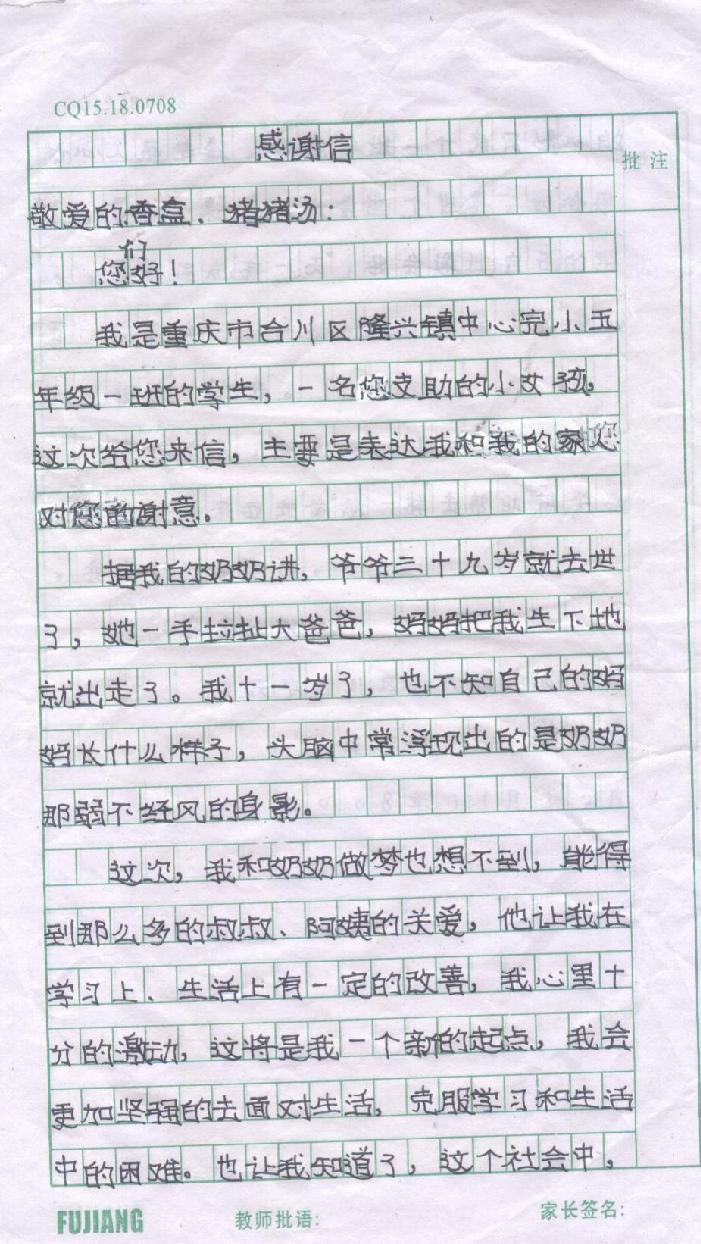 CQ15.18.0708
感谢信
批注
敬爱的香盒、猪猪汤：
您们好！
我是重庆市合川区隆兴镇中心完小五
年级一班的学生，一名您支助的小女孩，
这次给您来信，主要是表达我和我的家人
对您的谢意。
据我的奶奶讲，爷爷三十九岁就去世
了，她一手拉扯大爸爸，妈妈把我生下地
就出走了。我十一岁了，也不知自己的妈
妈长什么样子，头脑中常浮现出的是奶奶
那弱不经风的身影。
这次，我和奶奶做梦也想不到，能得
到那么多的叔叔、阿姨的关爱，他让我在
学习上、生活上有一定的改善，我心里十
分的激动，这将是我一个新的起点，我会
更加坚强的去面对生活，克服学习和生活
中的困难。也让我知道了，这个社会中，
FUJIANG 教师批语： 家长签名：